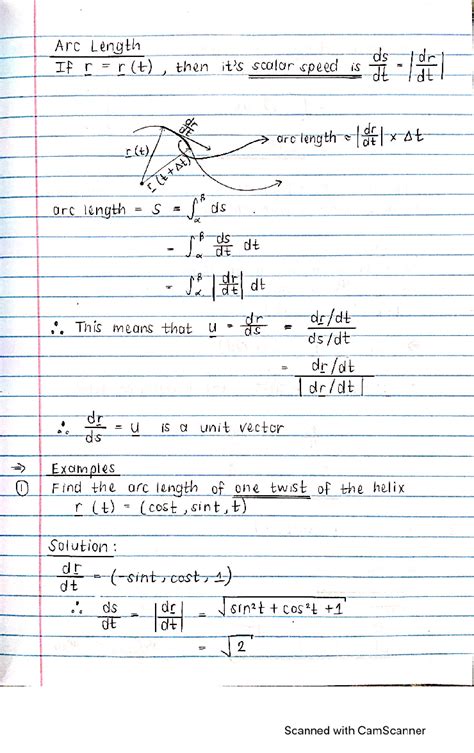 Arc Length
If r = r(t), then it's scalar speed is ds/dt = |dr/dt|
dr/dt
r(t)
r(t + Δt)
arc length ≈ |dr/dt| × Δt
arc length = s = ∫_α^β ds
= ∫_α^β ds/dt dt
= ∫_α^β |dr/dt| dt
∴ This means that u = dr/ds = (dr/dt)/(ds/dt)
= (dr/dt)/|dr/dt|
∴ dr/ds = u is a unit vector
⇒ Examples
① Find the arc length of one twist of the helix
r(t) = (cost, sint, t)
Solution:
dr/dt = (-sint, cost, 1)
∴ ds/dt = |dr/dt| = √(sin²t + cos²t + 1)
= √2
Scanned with CamScanner